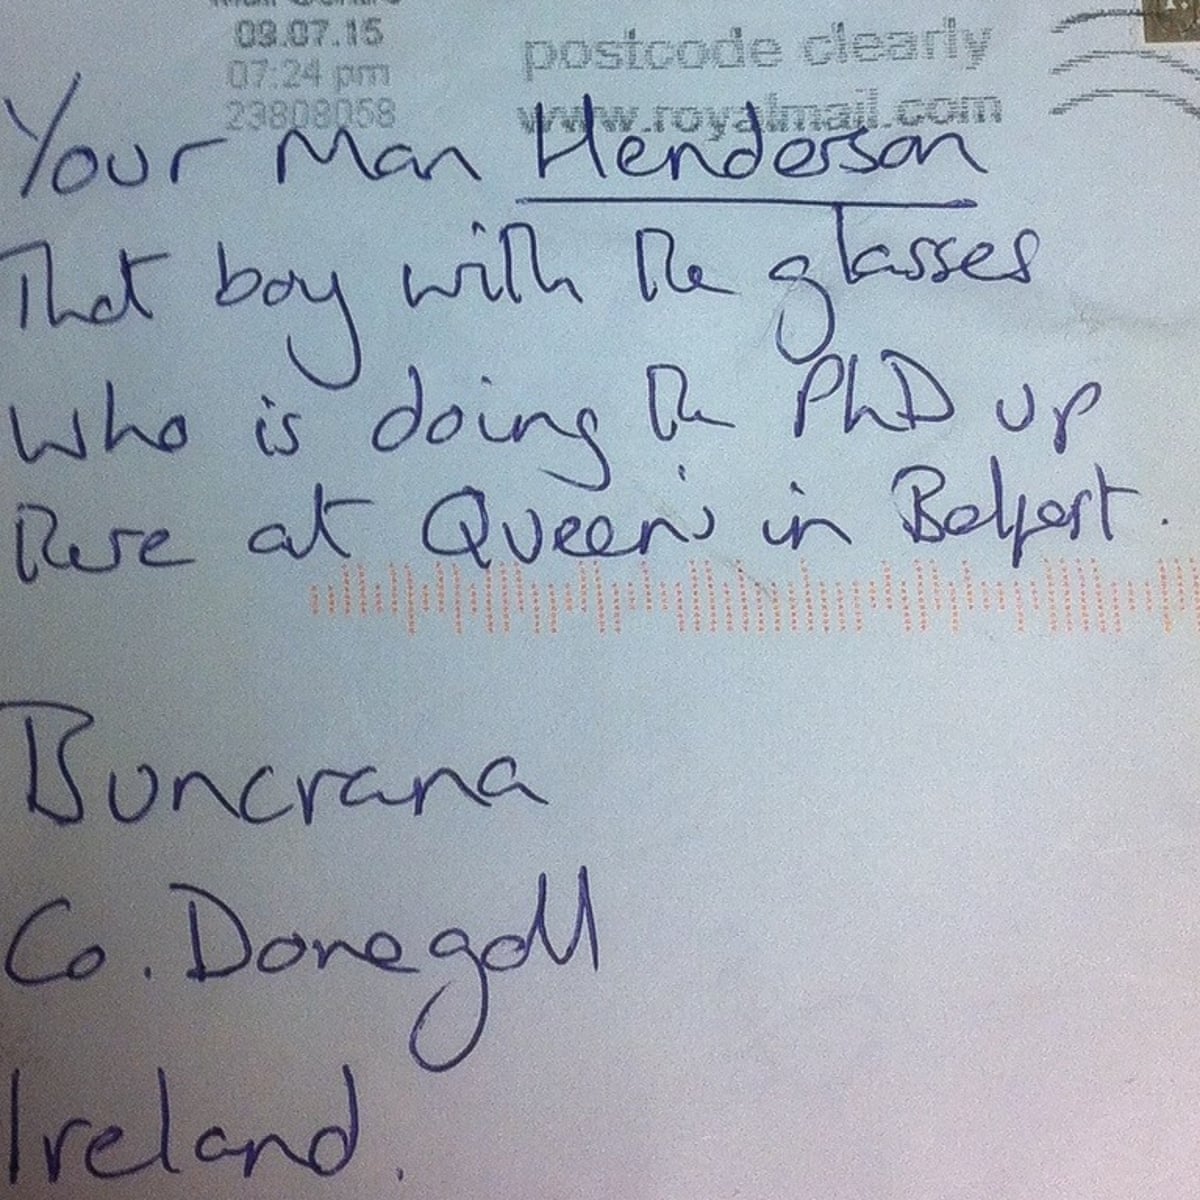 03.07.15
07:24 pm
23808058
postcode clearly
www.royalmail.com
Your Man Henderson
That boy with the glasses
who is doing the PhD up
there at Queen's in Belfast.
Buncrana
Co. Donegall
Ireland.